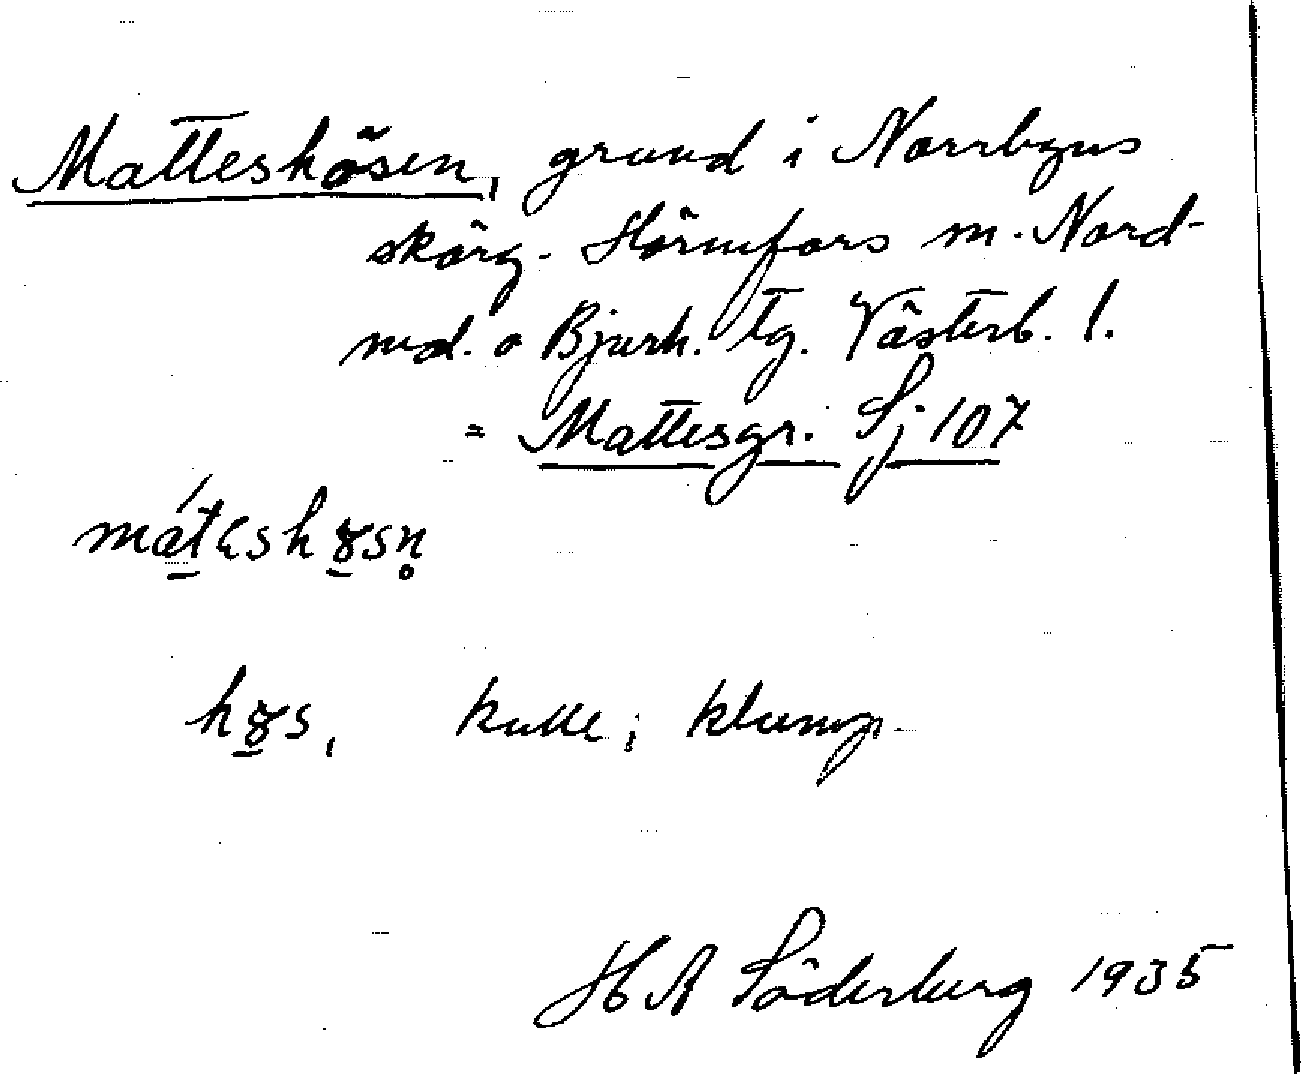 Matteshösen, grund i Norrbyns
skärg. Hörnefors m. Nord-
md. o Bjurh. tg. Västerb. l.
= Mattesgr. Sj 107
hɞs, kulle, klump.
H A Söderberg 1935